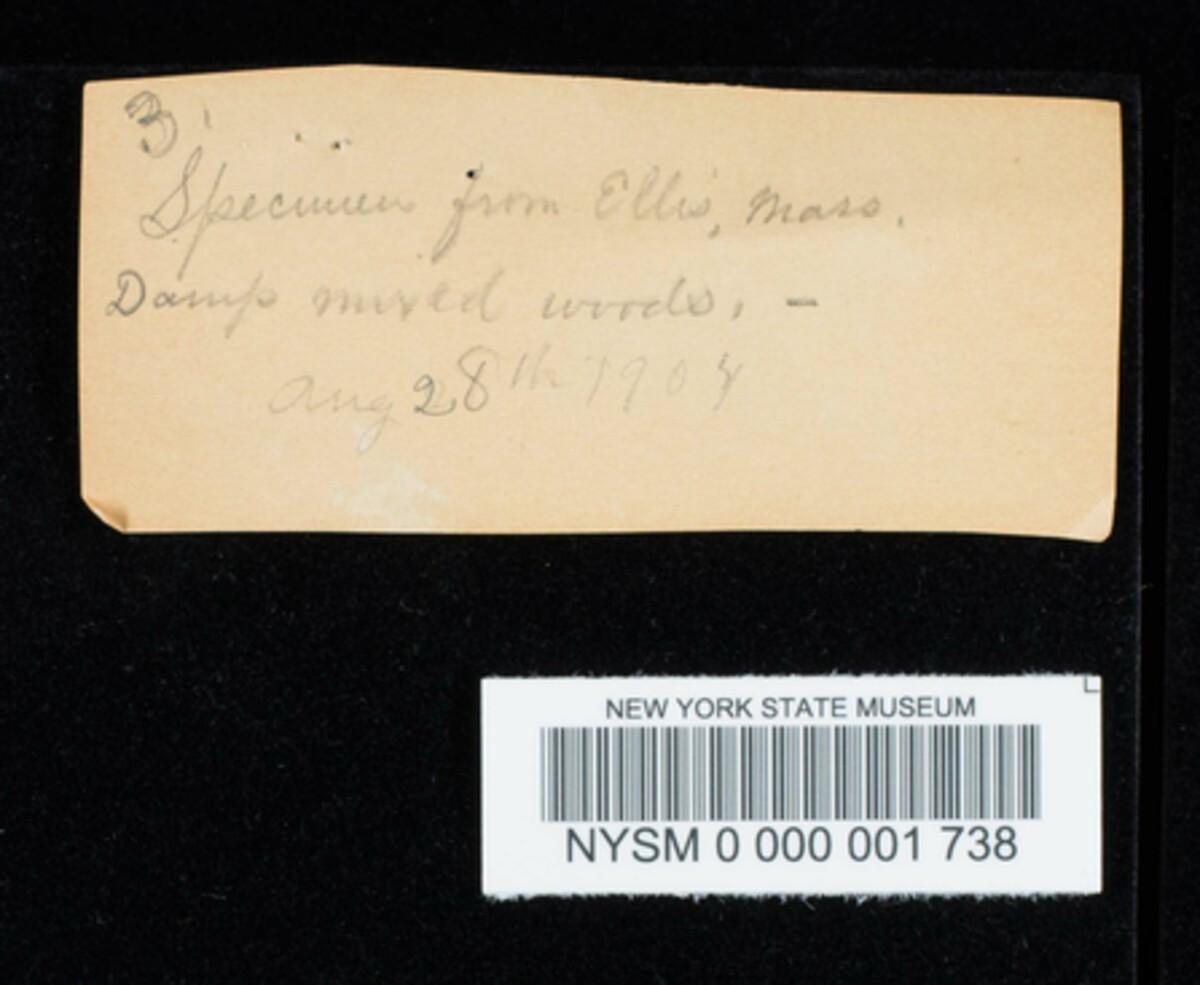 3
Specimen from Ellis, Mass.
Damp mixed woods. –
Aug 28th 1904
NEW YORK STATE MUSEUM
NYSM 0 000 001 738